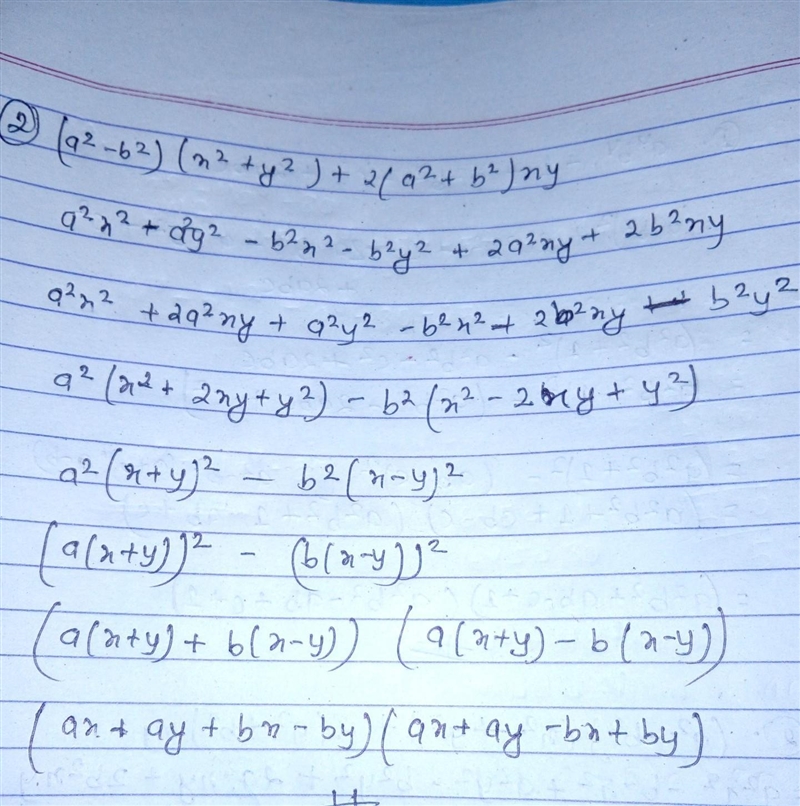 ② (a² - b²) (x² + y²) + 2(a² + b²)xy
a²x² + a²y² - b²x² - b²y² + 2a²xy + 2b²xy
a²x² + 2a²xy + a²y² - b²x² + 2b²xy - b²y²
a² (x² + 2xy + y²) - b² (x² - 2xy + y²)
a² (x+y)² - b² (x-y)²
(a(x+y))² - (b(x-y))²
(a(x+y) + b(x-y)) (a(x+y) - b(x-y))
(ax + ay + bx - by) (ax + ay - bx + by)